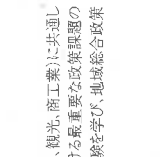 、観光、商工業)に共通し
ける最重要な政策課題の
験を学び、地域総合政策